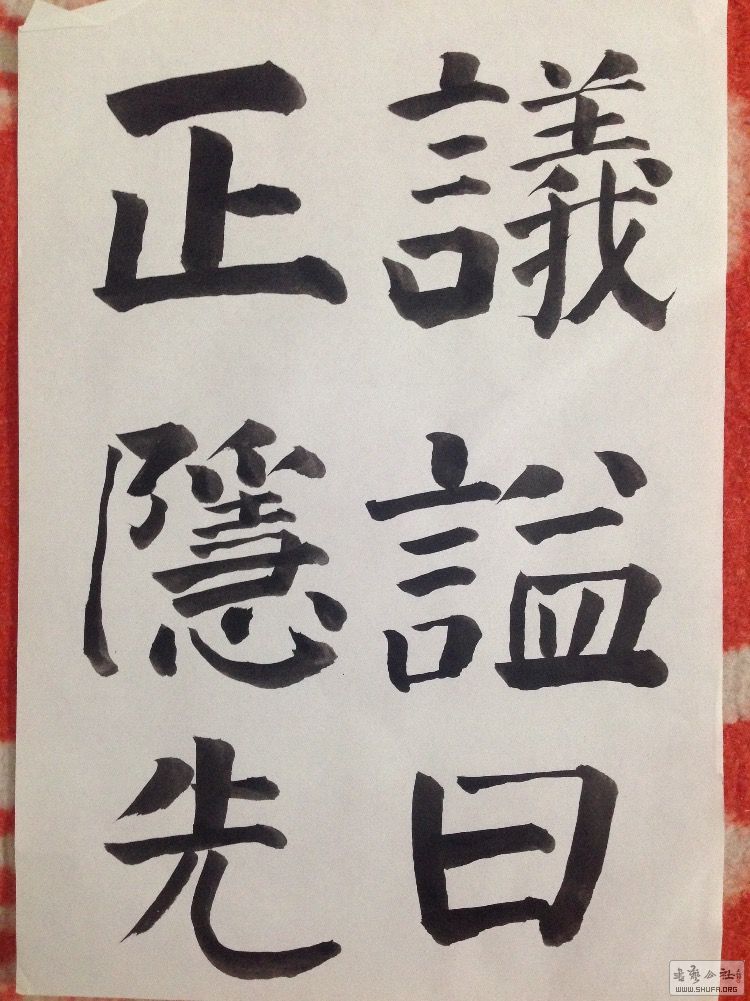 議謚曰
正隱先
书艺公社
WWW.SHUFA.ORG